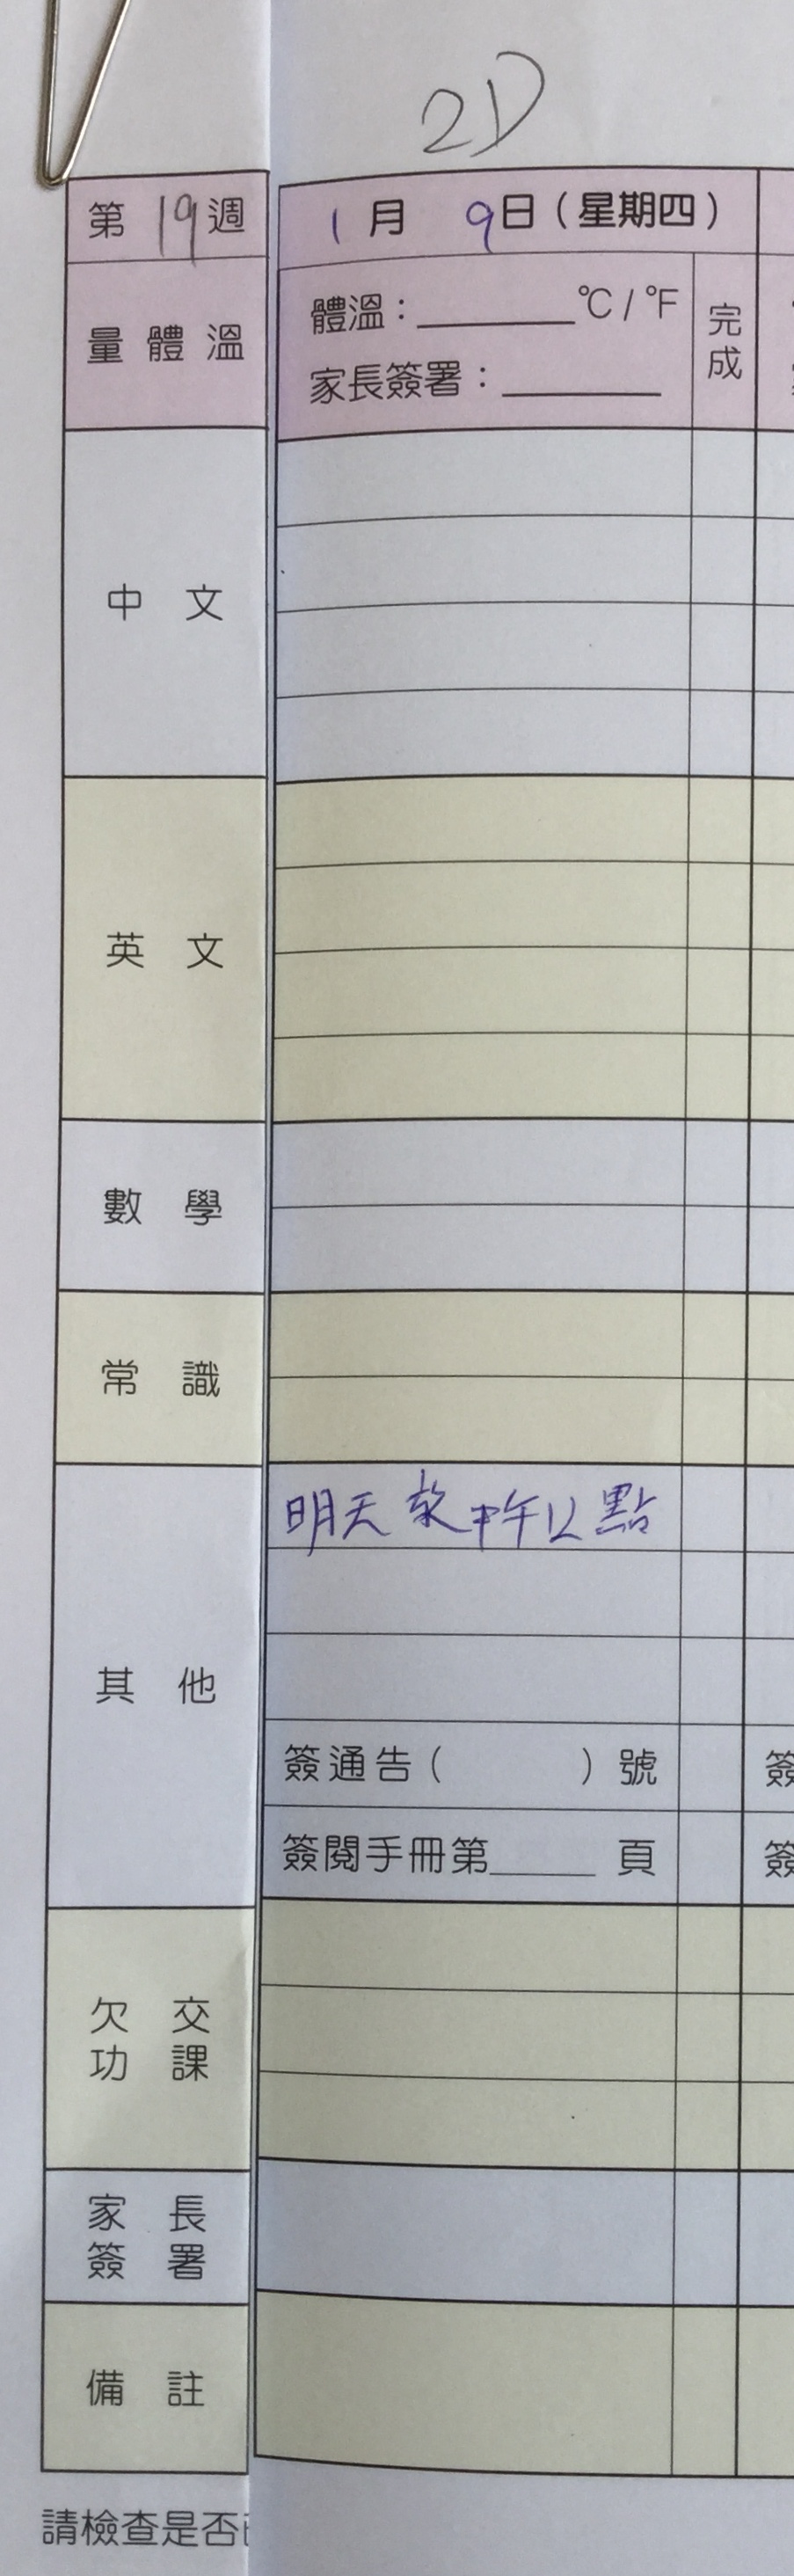 2D
第 19 週
1 月 9 日（星期四）
量體溫
體溫：______°C / °F
家長簽署：______
完成
中文
英文
數學
常識
明天放中午12點
其他
簽通告（ ）號
簽
簽閱手冊第_____ 頁
簽
欠交
功課
家長
簽署
備註
請檢查是否